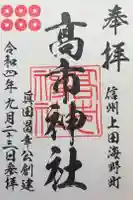 奉拝
信州上田海野町
高市神社
真田昌幸公創建
令和四年九月二十三日参拝